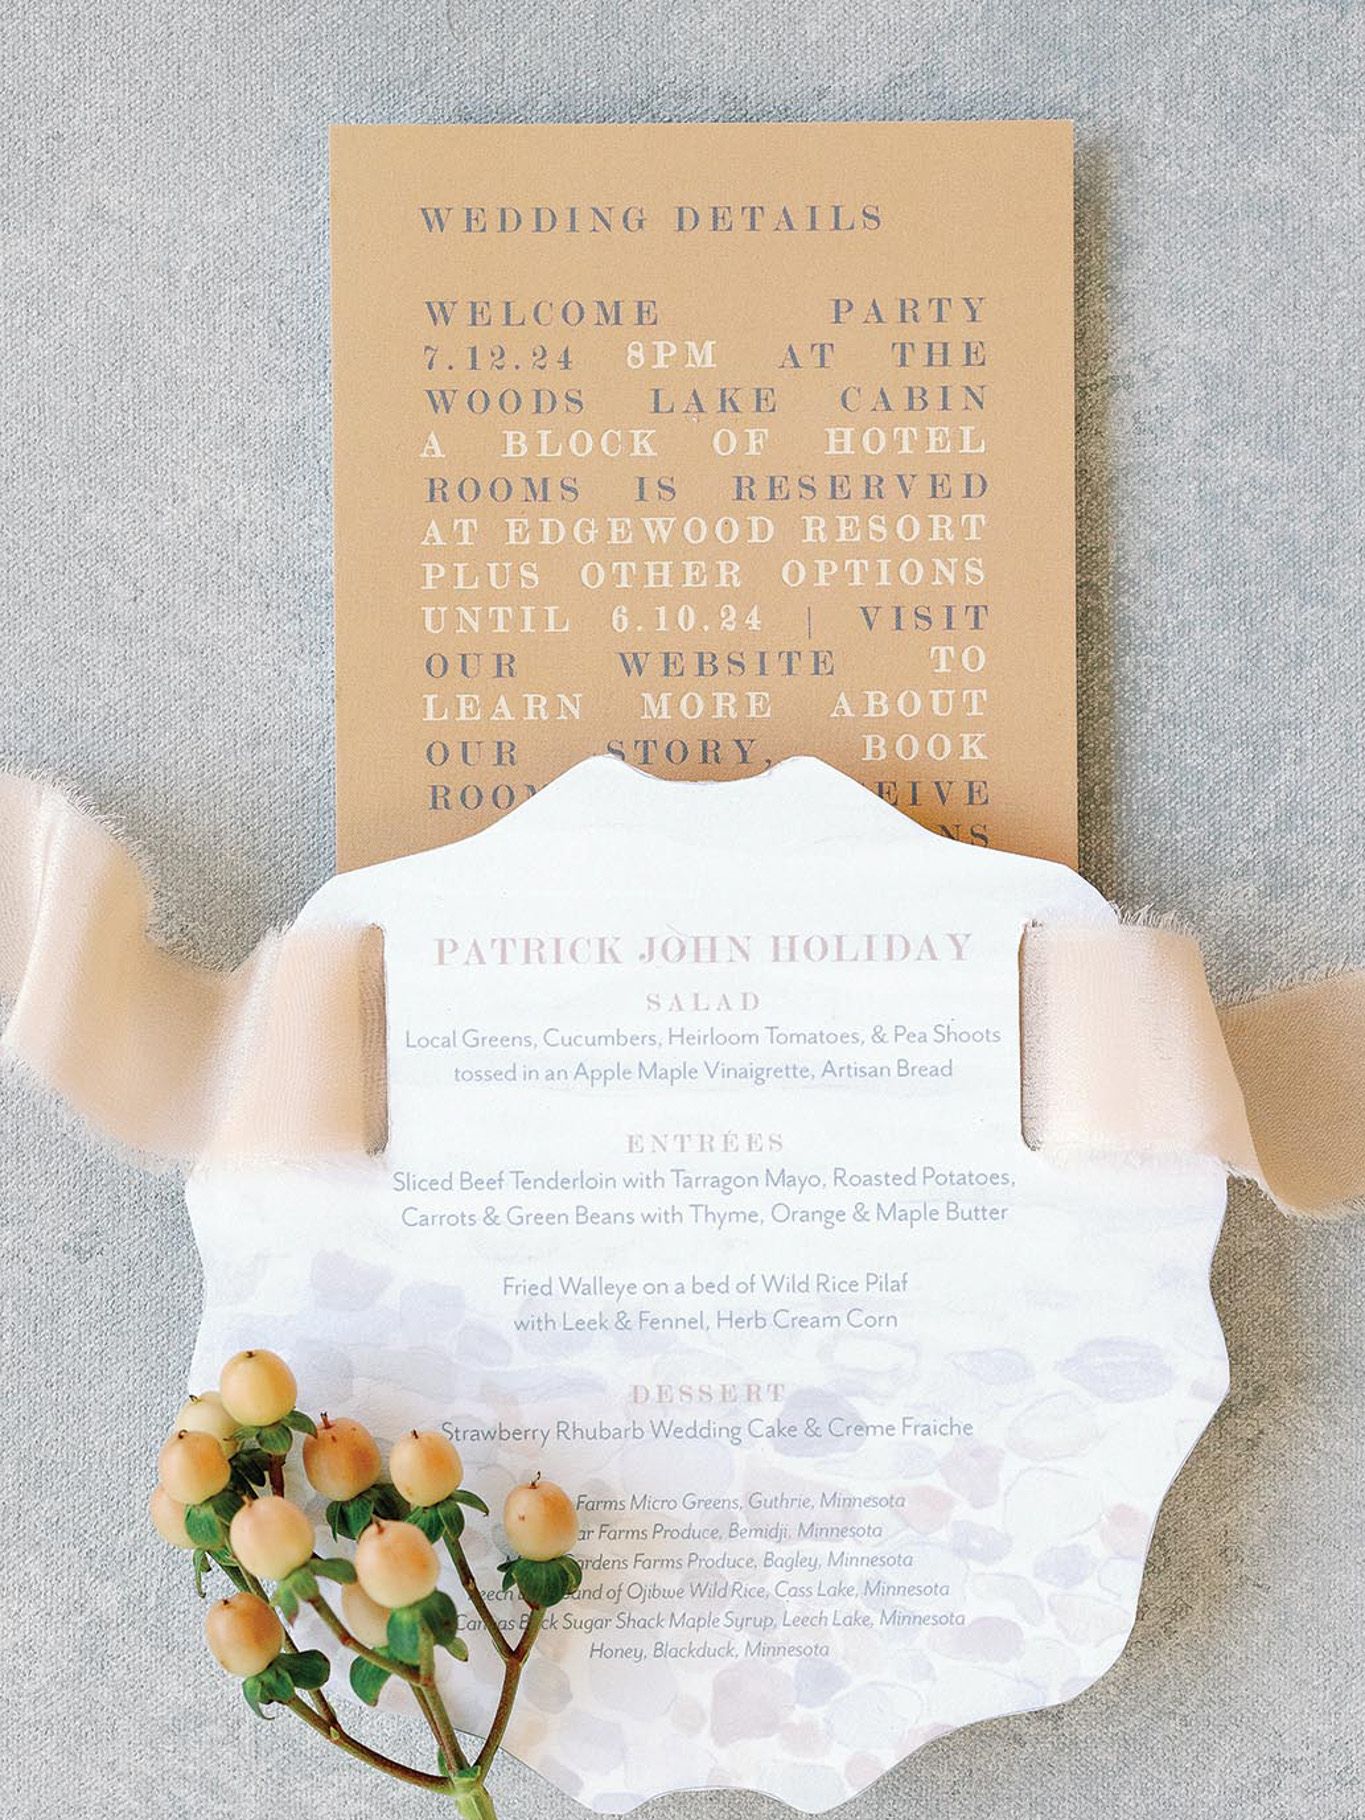 WEDDING DETAILS
WELCOME PARTY
7.12.24 8PM AT THE
WOODS LAKE CABIN
A BLOCK OF HOTEL
ROOMS IS RESERVED
AT EDGEWOOD RESORT
PLUS OTHER OPTIONS
UNTIL 6.10.24 | VISIT
OUR WEBSITE TO
LEARN MORE ABOUT
OUR STORY, BOOK
PATRICK JOHN HOLIDAY
SALAD
Local Greens, Cucumbers, Heirloom Tomatoes, & Pea Shoots
tossed in an Apple Maple Vinaigrette, Artisan Bread
ENTRÉES
Sliced Beef Tenderloin with Tarragon Mayo, Roasted Potatoes,
Carrots & Green Beans with Thyme, Orange & Maple Butter
Fried Walleye on a bed of Wild Rice Pilaf
with Leek & Fennel, Herb Cream Corn
DESSERT
Strawberry Rhubarb Wedding Cake & Creme Fraiche
Farms Micro Greens, Guthrie, Minnesota
Farms Produce, Bemidji, Minnesota
Farms Produce, Bagley, Minnesota
of Ojibwe Wild Rice, Cass Lake, Minnesota
Sugar Shack Maple Syrup, Leech Lake, Minnesota
Honey, Blackduck, Minnesota